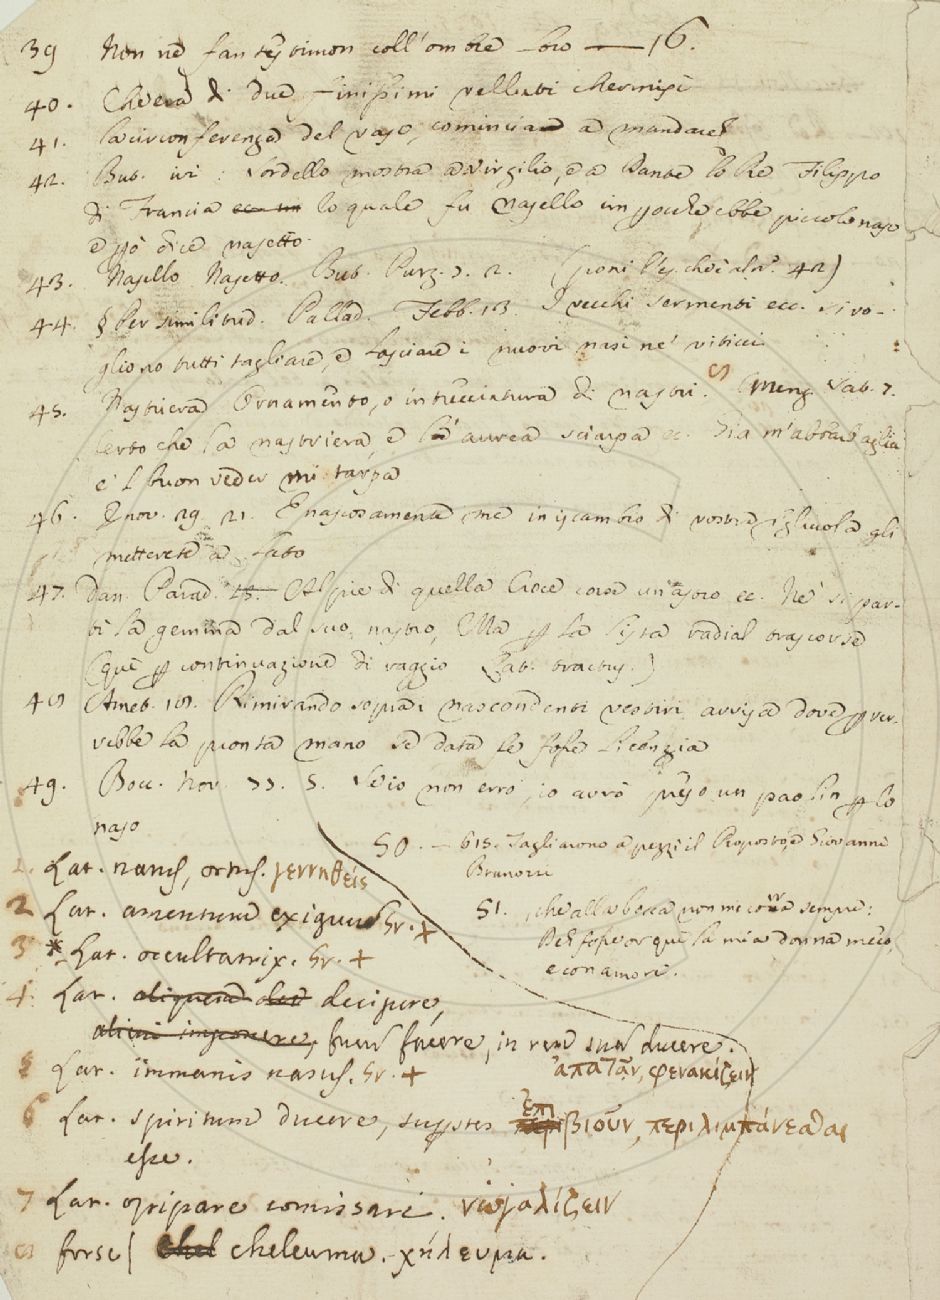 39 Non ne fantesti mon coll'ombre loro — 16.
40. Ch'era di due finissimi velluti chermisi
41. la circonferenza del vaso, cominciare a mandare
42. But. ivi: Sordello mostra a Virgilio, e a Dante lo Re Filippo
di Francia lo quale fu nasello imperché ebbe piccolo naso
e però dice nasetto.
43. Nasello Nasetto. But. Purg. 7. 2. (poni l'es. ch'è al n. 42)
44. § Per similitud. Pallad. Febb. 13. I vecchi sermenti ecc. si vo-
gliono tutti tagliare, e lasciare i nuovi nasi ne' viticci
45. Nastriera Ornamento, o intrecciatura di nastri. Menz. Sat. 7.
Certo che la nastriera, e la aurea sciarpa ec. Sia m'abbarbaglia
e 'l buon veder mi tarpa
46. G. nov. 29. 21. E nascosamente me in iscambio di vostra figliuola gli
metterete a lato
47. Dan. Parad. Al piè di quella Croce corse un astro ec. Nè si par-
tì la gemma dal suo nastro, Ma per la lista radial trascorse
(quì per continuazione di raggio Lat. tractus.)
48 Amet. 18. Rimirando sopra i nascondenti vestiri avvisa dove perver-
rebbe la pronta mano se data le fosse licenzia
49. Bocc. Nov. 33. 5. Se io non erro, io avrò preso un paolin per lo
naso
50. — 615. Tagliarono a pezzi il Proposto, e Giovanni
Brunozzi
51. , che alla berca non mi corra sempre:
Deh fosse or quì la mia donna meco,
e con amore.
1. Lat. natus, ortus. γεννηθείς
2 Lat. amentum exiguum Gr. +
3 * Lat. occultatrix. Gr. +
4. Lat. decipere,
fucum facere, in rem suam ducere.
ἀπατᾶν, φενακίζειν
5 Lat. immanis nasus. Gr. +
6 Lat. spiritum ducere, supstes ἐπιβιοῦν, περιλιμπάνεσθαι
esse.
7 Lat. opipare comissari.
8 forse cheleuma. χήλευμα.